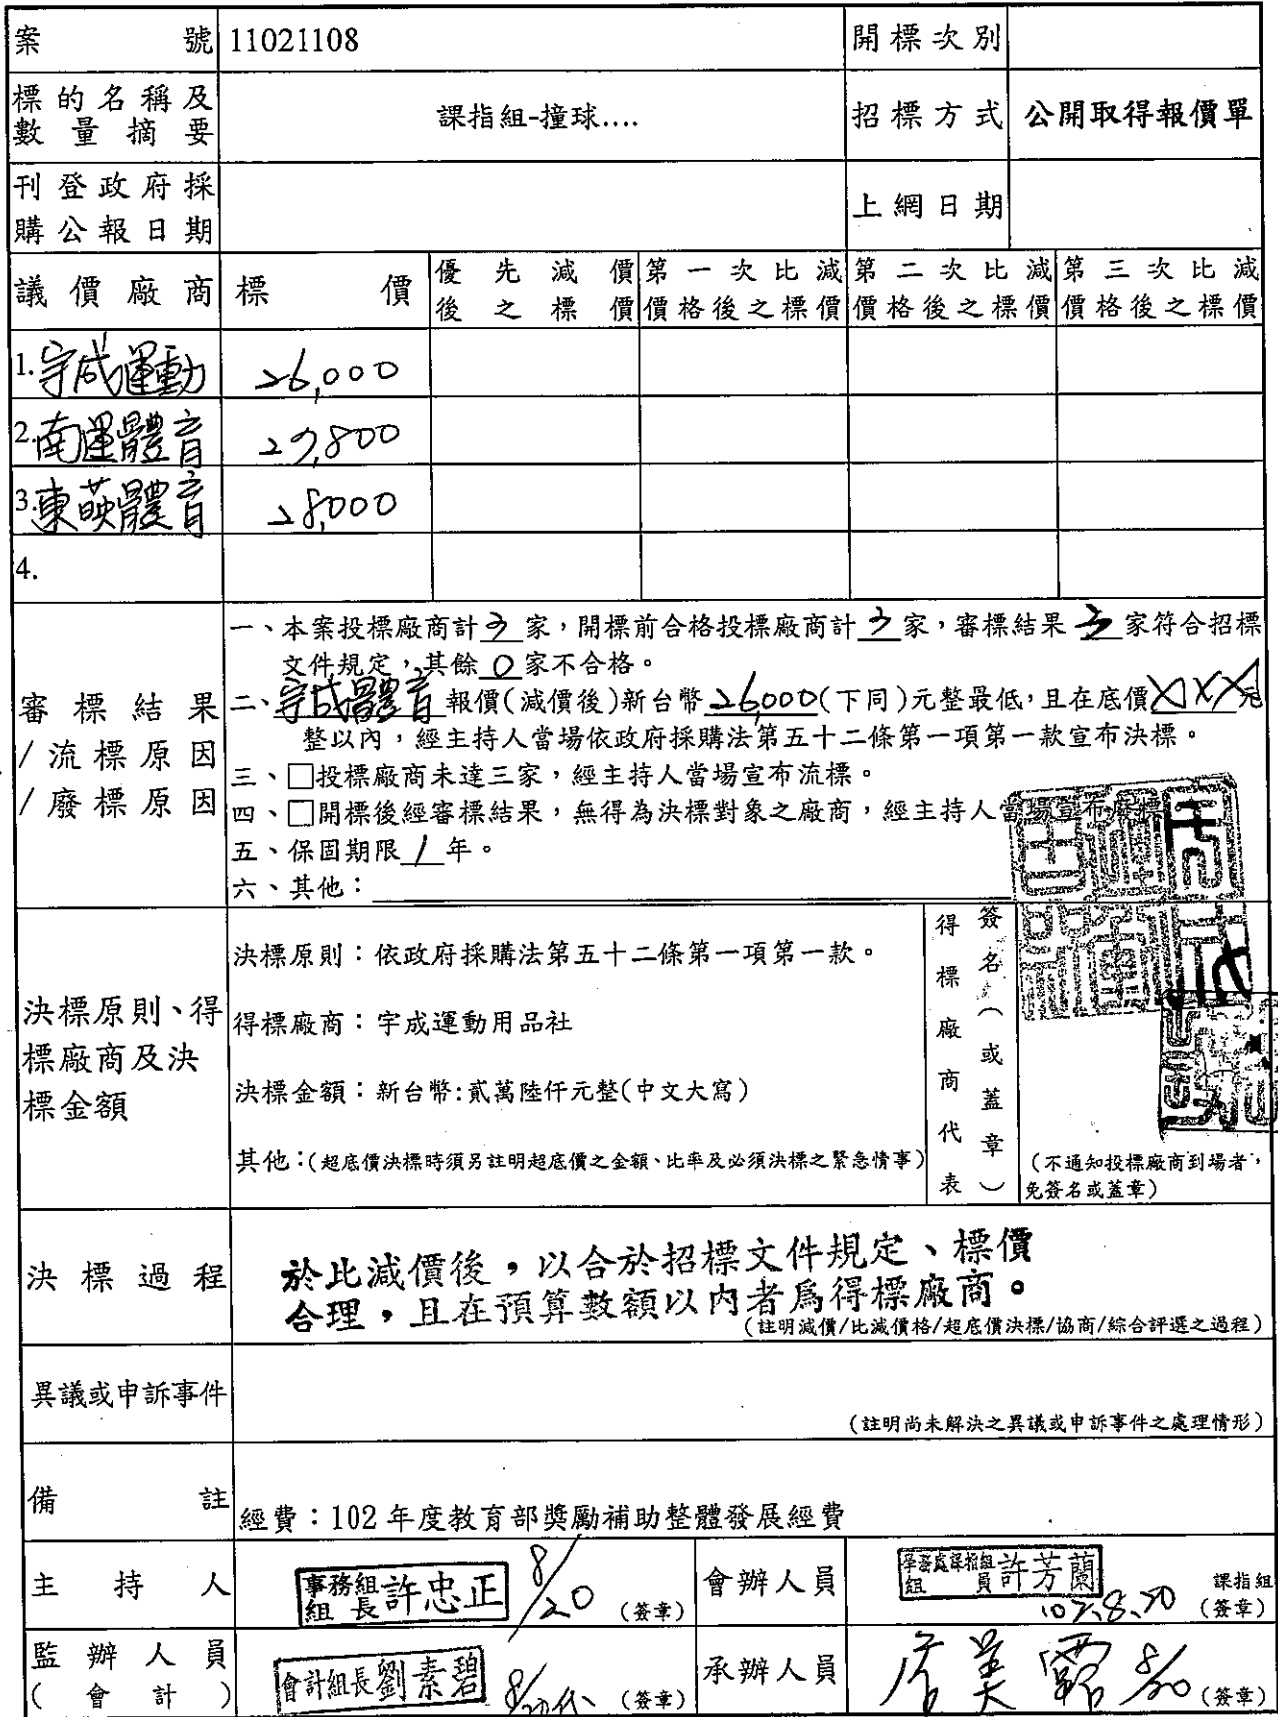 案號 11021108 開標次別
標的名稱及數量摘要 課指組-撞球.... 招標方式 公開取得報價單
刊登政府採購公報日期 上網日期
議價廠商 標價 優先減價後之標價 第一次比減價格後之標價 第二次比減價格後之標價 第三次比減價格後之標價
1.宇成運動 26,000
2.南運體育 29,800
3.東英體育 28,000
4.
審標結果/流標原因/廢標原因
一、本案投標廠商計 3 家,開標前合格投標廠商計 3 家,審標結果 3 家符合招標
文件規定,其餘 0 家不合格。
二、宇成體育 報價(減價後)新台幣 26,000(下同)元整最低,且在底價XXX元
整以內,經主持人當場依政府採購法第五十二條第一項第一款宣布決標。
三、□投標廠商未達三家,經主持人當場宣布流標。
四、□開標後經審標結果,無得為決標對象之廠商,經主持人當場宣布廢標
五、保固期限 1 年。
六、其他:
決標原則、得標廠商及決標金額
決標原則:依政府採購法第五十二條第一項第一款。
得標廠商:宇成運動用品社
決標金額:新台幣:貳萬陸仟元整(中文大寫)
其他:(超底價決標時須另註明超底價之金額、比率及必須決標之緊急情事)
得標廠商代表簽名(或蓋章)
(不通知投標廠商到場者,
免簽名或蓋章)
決標過程
於比減價後,以合於招標文件規定、標價
合理,且在預算數額以內者為得標廠商。
(註明減價/比減價格/超底價決標/協商/綜合評選之過程)
異議或申訴事件
(註明尚未解決之異議或申訴事件之處理情形)
備註 經費:102 年度教育部獎勵補助整體發展經費
主持人 事務組組長許忠正 8/20 (簽章) 會辦人員 學務處課指組組員許芳蘭 102.8.20 課指組(簽章)
監辦人員(會計) 會計組長劉素碧 8/20代 (簽章) 承辦人員 8/20 (簽章)